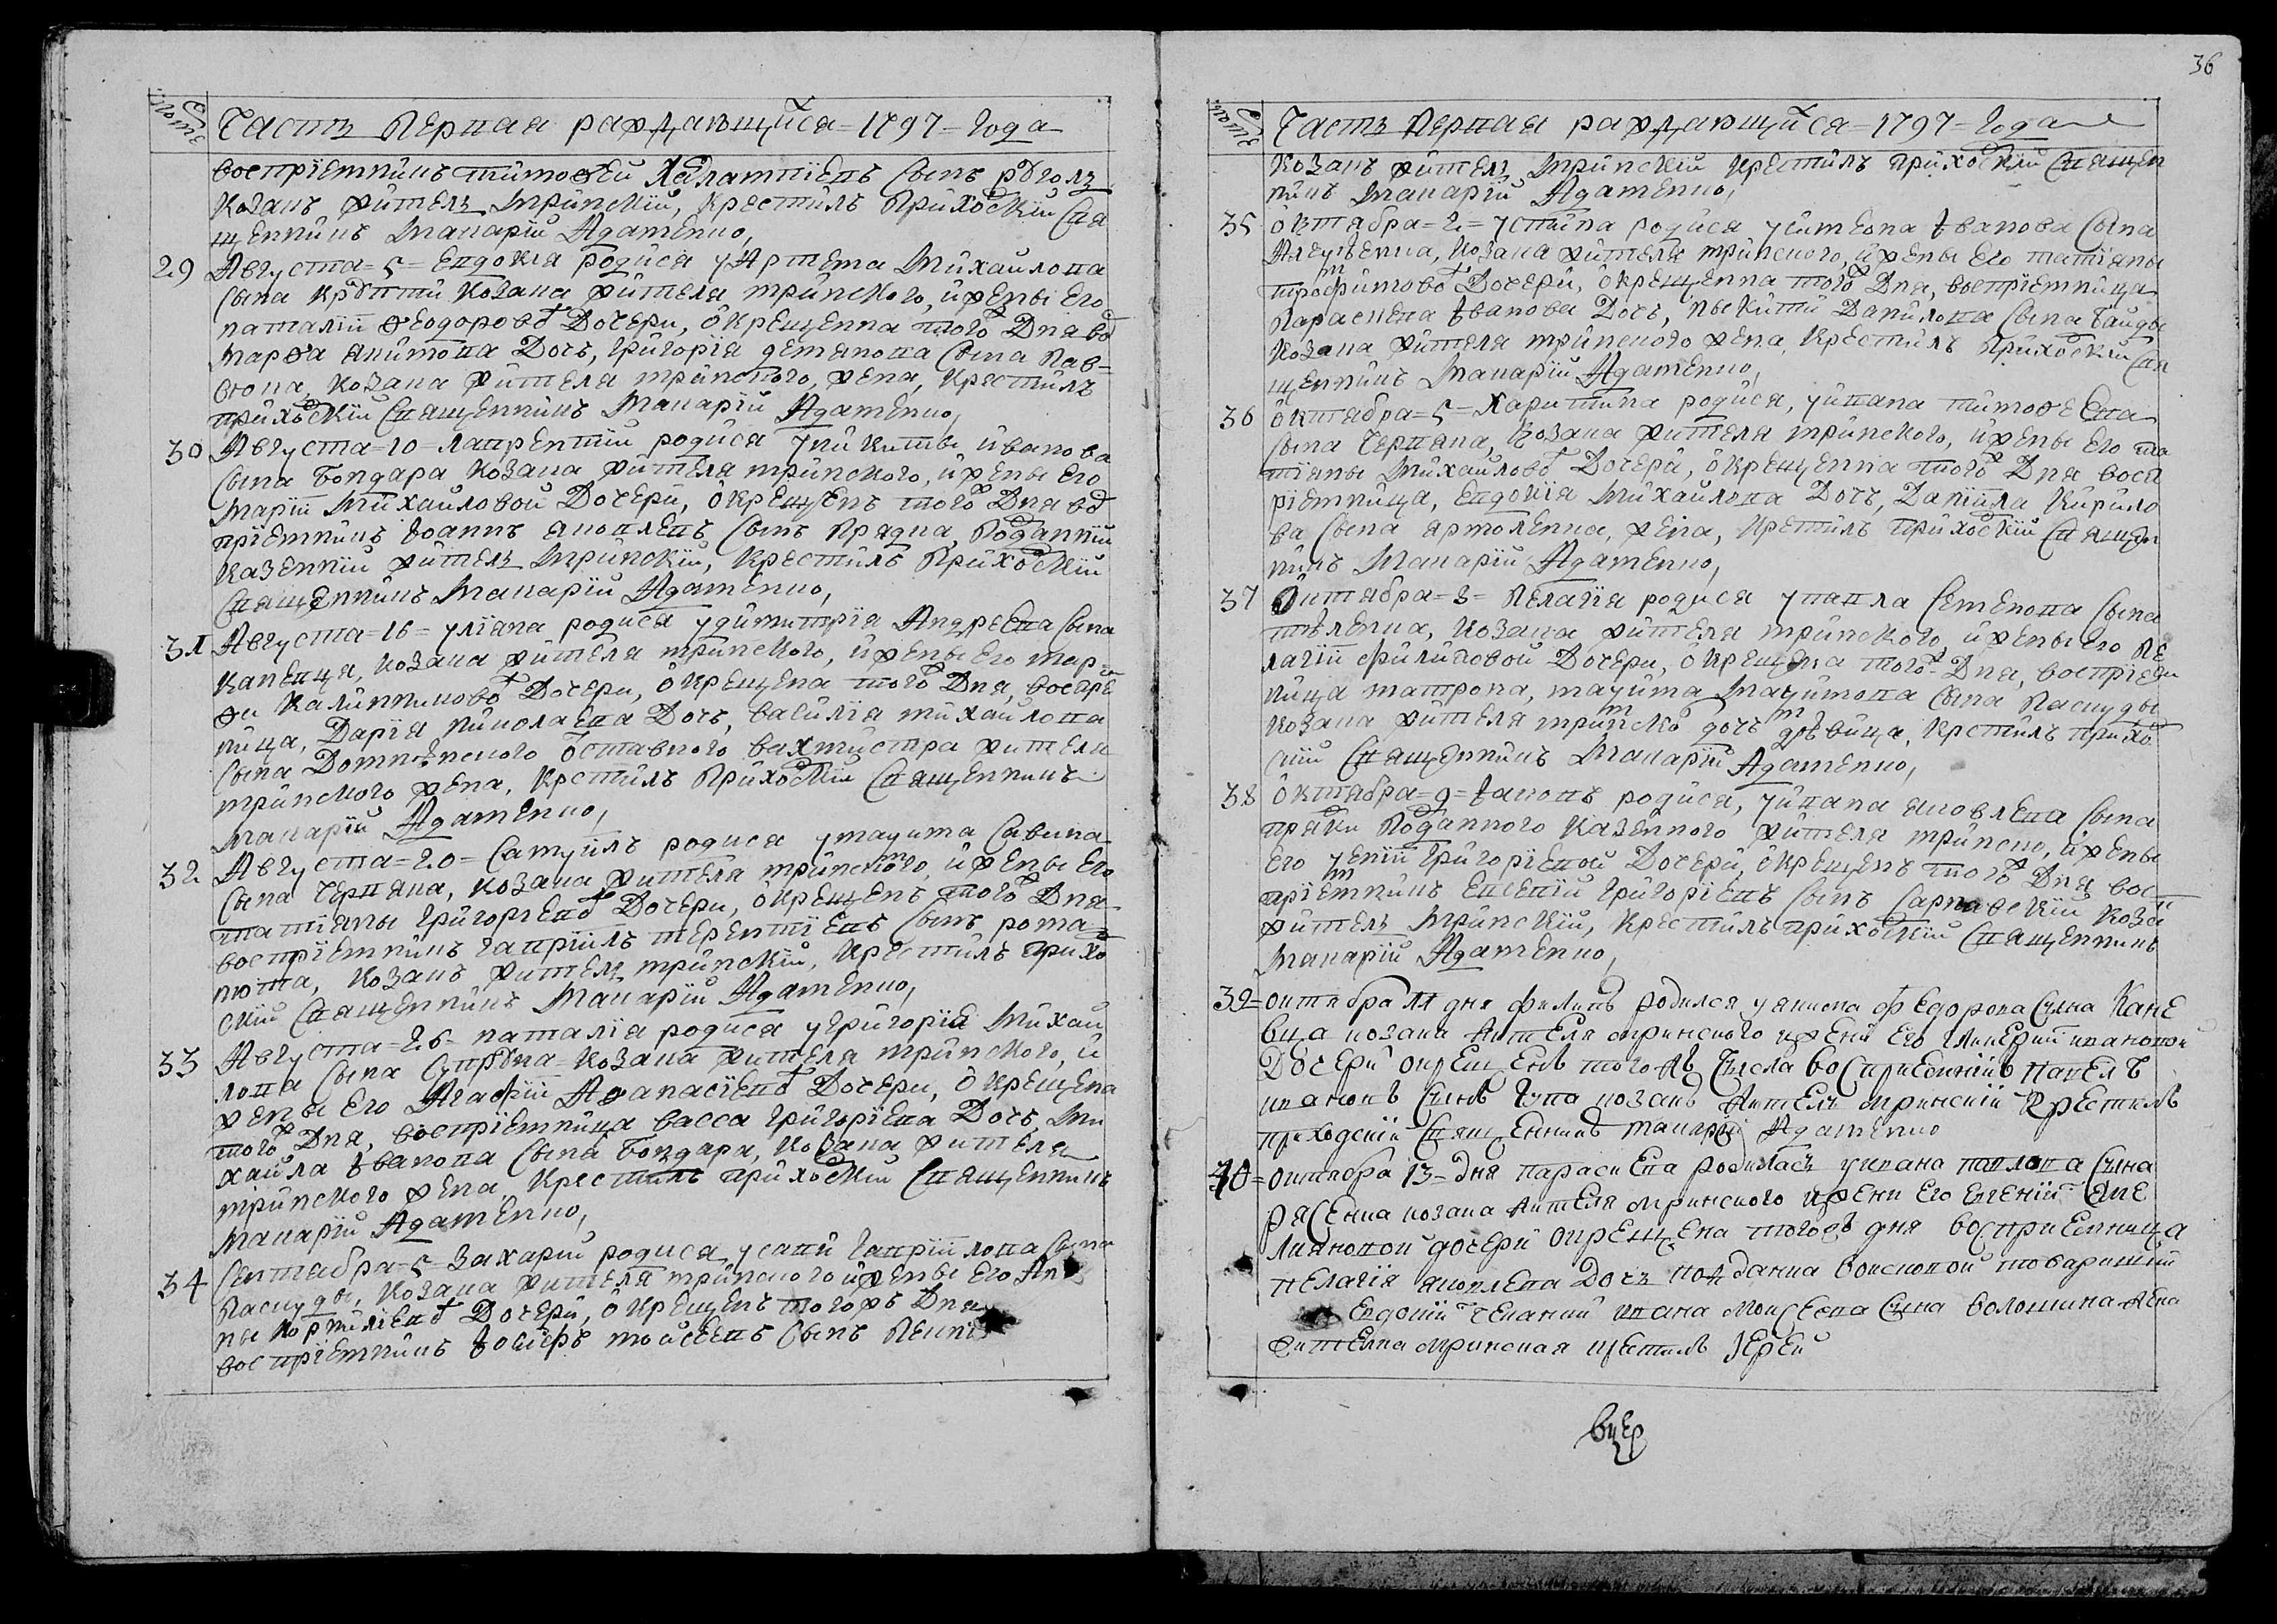 Часть Первая раждающийся = 1797 = года
воспріемникъ тимоѳей Харлампіевъ сынъ
козакъ житель мринскій, крестилъ Приходскій свя
щенникъ Макарій Адаменко,
29 Августа = 5 = Евдокія родися у Артема Михайлова
сына козака жителя мринского, и жены его
наталіи Ѳеодоровой Дочери, окрещенна того ж Дня во
марѳа никитова Дочь, Григорія демянова сына Пав=
козака жителя мринского, жена, крестилъ
приходскій священникъ Макарій Адаменко,
30 Августа = 10 = лаврентій родися у никиты иванова
сына Бондара козака жителя мринского, и жены его
маріи Михайловой Дочери, окрещенъ того ж Дня вос
пріемникъ Іоаннъ яковлевъ сынъ Прядка, Подданній
казенній житель Мринскій, крестилъ Приходскій
священникъ Макарій Адаменко,
31 Августа = 16 = уліана родися у димитрія Андреева сына
каневця, козака жителя мринского, и жены его мар=
ѳи Калинниковой Дочери, окрещена того ж Дня, воспре
ница, Дарія николаева Дочь, василія михайлова
сына оставного вахмистра жителя
мринского жена, крстилъ Приходскій священникъ
макарій Адаменко,
32 Августа = 20 = Самуилъ родися у мауима Савина
сына червяка, козака жителя мринского, и жены его
татіяны Григоріевой Дочери, окрещенъ того ж Дня
воспріемникъ гавріилъ терентіевъ сынъ рома
нюта, козакъ житель мринскій, крестилъ прихо
скій священникъ Макарій Адаменко,
33 Августа = 26 = наталія родися у григорія Михай
лова сына Супруна козака жителя мринского, и
жены его Агафіи Аѳанасіевой Дочери, окрещена
того ж Дня, воспріемница васса григоріева Дочь, Ми
хайла Іванова сына Бондара, козака жителя
мринского жена, крестилъ приходскій священникъ
Макарій Адаменко,
34 Сентября = 5 = захарій родися у савы гавріилова сына
Паскуды, козака жителя мринского и жены его Ан
ны корниліевой Дочери, окрещенъ того жъ Дня
воспріемникъ Іосифъ мойсеевъ сынъ
36
Часть Первая раждающийся = 1797 = года
козакъ житель мринскій крестилъ приходскій священ
никъ Макарій Адаменко,
35 октября = 2 = устина родися у Іванова сына
козака жителя мринского, и жены его татіяны
трофимовой Дочери, окрещенна того ж Дня, воспріемница
Параскева Іванова Дочь, никити Данилова сына Байды
козака жителя мринского жена, крестилъ Приходскій свя
щенникъ Макарій Адаменко,
36 октября = 5 = Харитина родися, у ивана тимоѳеева
сына Червяка, козака жителя мринского, и жены его та
тіяны Михайловой Дочери, окрещенна того ж Дня восп
ріемница, Евдокія Михайлова Дочь, Даніила Кирило
ва сына ярмоленка, жена, крстилъ приходскій священ
никъ Макарій Адаменко,
37 октября = 8 = Пелагія родися у павла Семенова сына
козака жителя мринского, и жены его Пе
лагіи филиповой Дочери, окрещена того ж Дня, воспріем
ница матрона, мауима мауимова сына Паскуды
козака жителя мринско дочь девица, крстилъ прихо
скій священникъ Макарій Адаменко,
38 октября = 9 = Іаковъ родися, у ивана яковлева сына
прядки Подданного казенного жителя мринско, и жены
его уеніи григоріевой Дочери, окрещенъ того ж Дня вос
пріемникъ Евсевій григоріевъ сынъ козак
житель мринскій, крестилъ приходскій священникъ
Макарій Адаменко,
39 = октября 11 дня филипъ родился у якима федорова сына Кане
вца козака жителя мринского и жени его гликерии ивановой
Дочери окрещенъ того жъ числа восприемникъ павелъ
ивановъ сынъ козакъ житель мринскій крестилъ
приходскій священникъ макарій Адаменко
40 = октября 13 = дня параскева родилась у ивана павлова сина
козака жителя мринского и жени его евгении еме
лияновой дочери окрещена того жъ дня восприемница
пелагія яковлева Дочь подданка войсковой товаришки
Евдокіи ивана моисеева сина волошина жена
жителка мринская крестилъ іерей